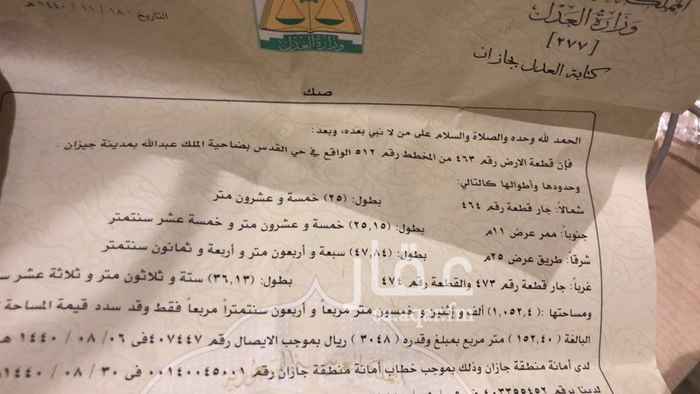 وزارة العدل
[٢٧٧]
كتابة العدل بجازان
التاريخ ١٨ / ١١ / ١٤٤٠هـ
وزارة العدل
صك
الحمد لله وحده والصلاة والسلام على من لا نبي بعده، وبعد:
فإن قطعة الارض رقم ٤٦٣ من المخطط رقم ٥١٢ الواقع في حي القدس بضاحية الملك عبدالله بمدينة جيزان .
وحدودها وأطوالها كالتالي:
شمالاً: جار قطعة رقم ٤٦٤ بطول: (٢٥) خمسة و عشرون متر
جنوباً: ممر عرض ١١م بطول: (٢٥,١٥) خمسة و عشرون متر و خمسة عشر سنتمتر
شرقاً: طريق عرض ٢٥م بطول: (٤٧,٨٤) سبعة و أربعون متر و أربعة و ثمانون سنتمتر
غرباً: جار قطعة رقم ٤٧٣ والقطعة رقم ٤٧٤ بطول: (٣٦,١٣) ستة و ثلاثون متر و ثلاثة عشر
ومساحتها: (١,٠٥٢,٤) ألف و اثنين و خمسون متر مربعاً و أربعون سنتمتراً مربعاً فقط وقد سدد قيمة المساحة
البالغة (١٥٢,٤٠) متر مربع بمبلغ وقدره (٣٠٤٨) ريال بموجب الايصال رقم ٤٠٧٤٤٧ في ٠٦ / ٠٨ / ١٤٤٠ هـ
لدى أمانة منطقة جازان وذلك بموجب خطاب أمانة منطقة جازان رقم ٠٠١٤٠٠٤٥٠٠١ في ٣٠ / ٠٨ / ١٤٤٠
لدينا برقم ٤٠٣٢٥٥٤٥٢
عقار
aqar.fm